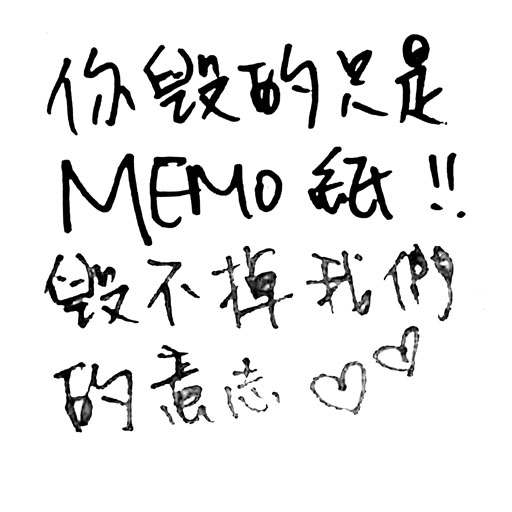 你毀的只是
MEMO紙!!
毀不掉我們
的意志♡♡